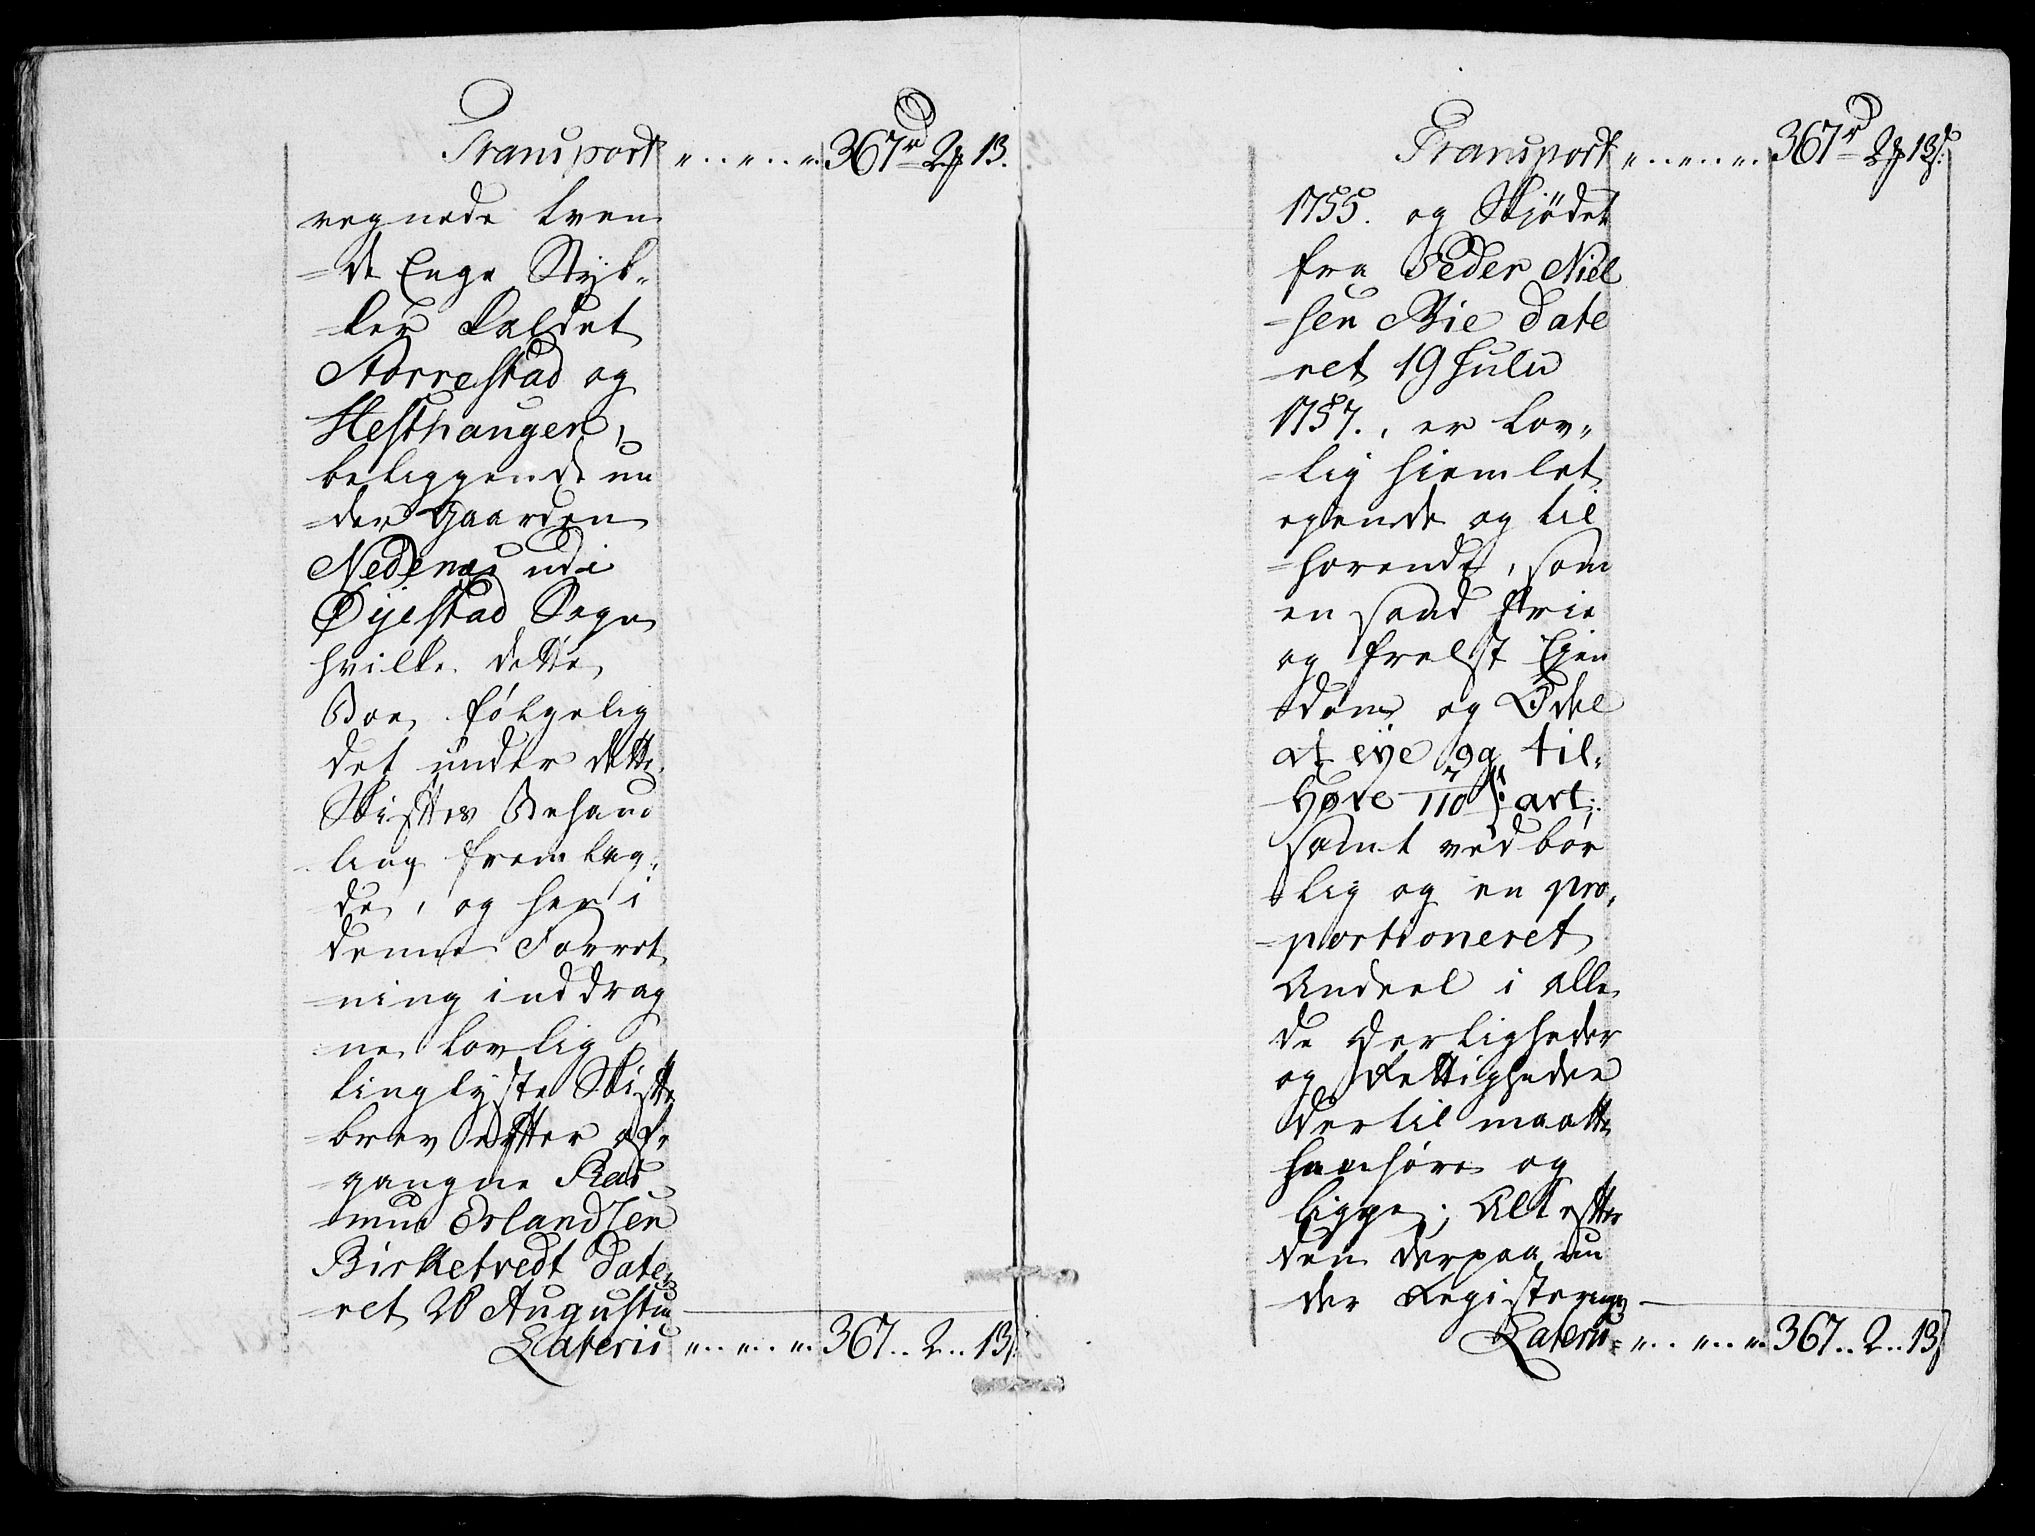 Transport „..„..„. 367rd 2 13.
regnede tven
=de Enge Styk=
=ker kaldet
Storrestad og
Hesthaugen,
beliggende un
=der Gaarden
Nedenæs udi
Øyestad Sogn
hvilke dette
Boe følgelig
det under dette
Skiftes Behand
ling fremlag=
de, og her i
denne Forret
=ning inddrag
ne lovlig
tinglyste Skifte
brev efter af=
=gangne Ras
=mus Erlandsen
Birketvedt date=
=ret 28 Augustus
Lateris „..„..„. 367..2..13ß
Transport „..„..„. 367rd 2 13ß:
1755. og Skjødet
fra Peder Niel
=sen Bie date
=ret 19 Julii
1757., er lov=
=lig hiemlet
egende og til
=hørende, som
en sand frie
og frelst Eien
dom og Odel
at eye og til=
Høre 7/110 ß: art:
samt ved bør
lig og en pro=
=portioneret
Andeel i alle
de Herligheder
og Rettigheder
dertil maatte
henhøre og
ligge; Alt efter
den derpaa un
der Registerings
Lateris „..„..„. 367..2..13ß